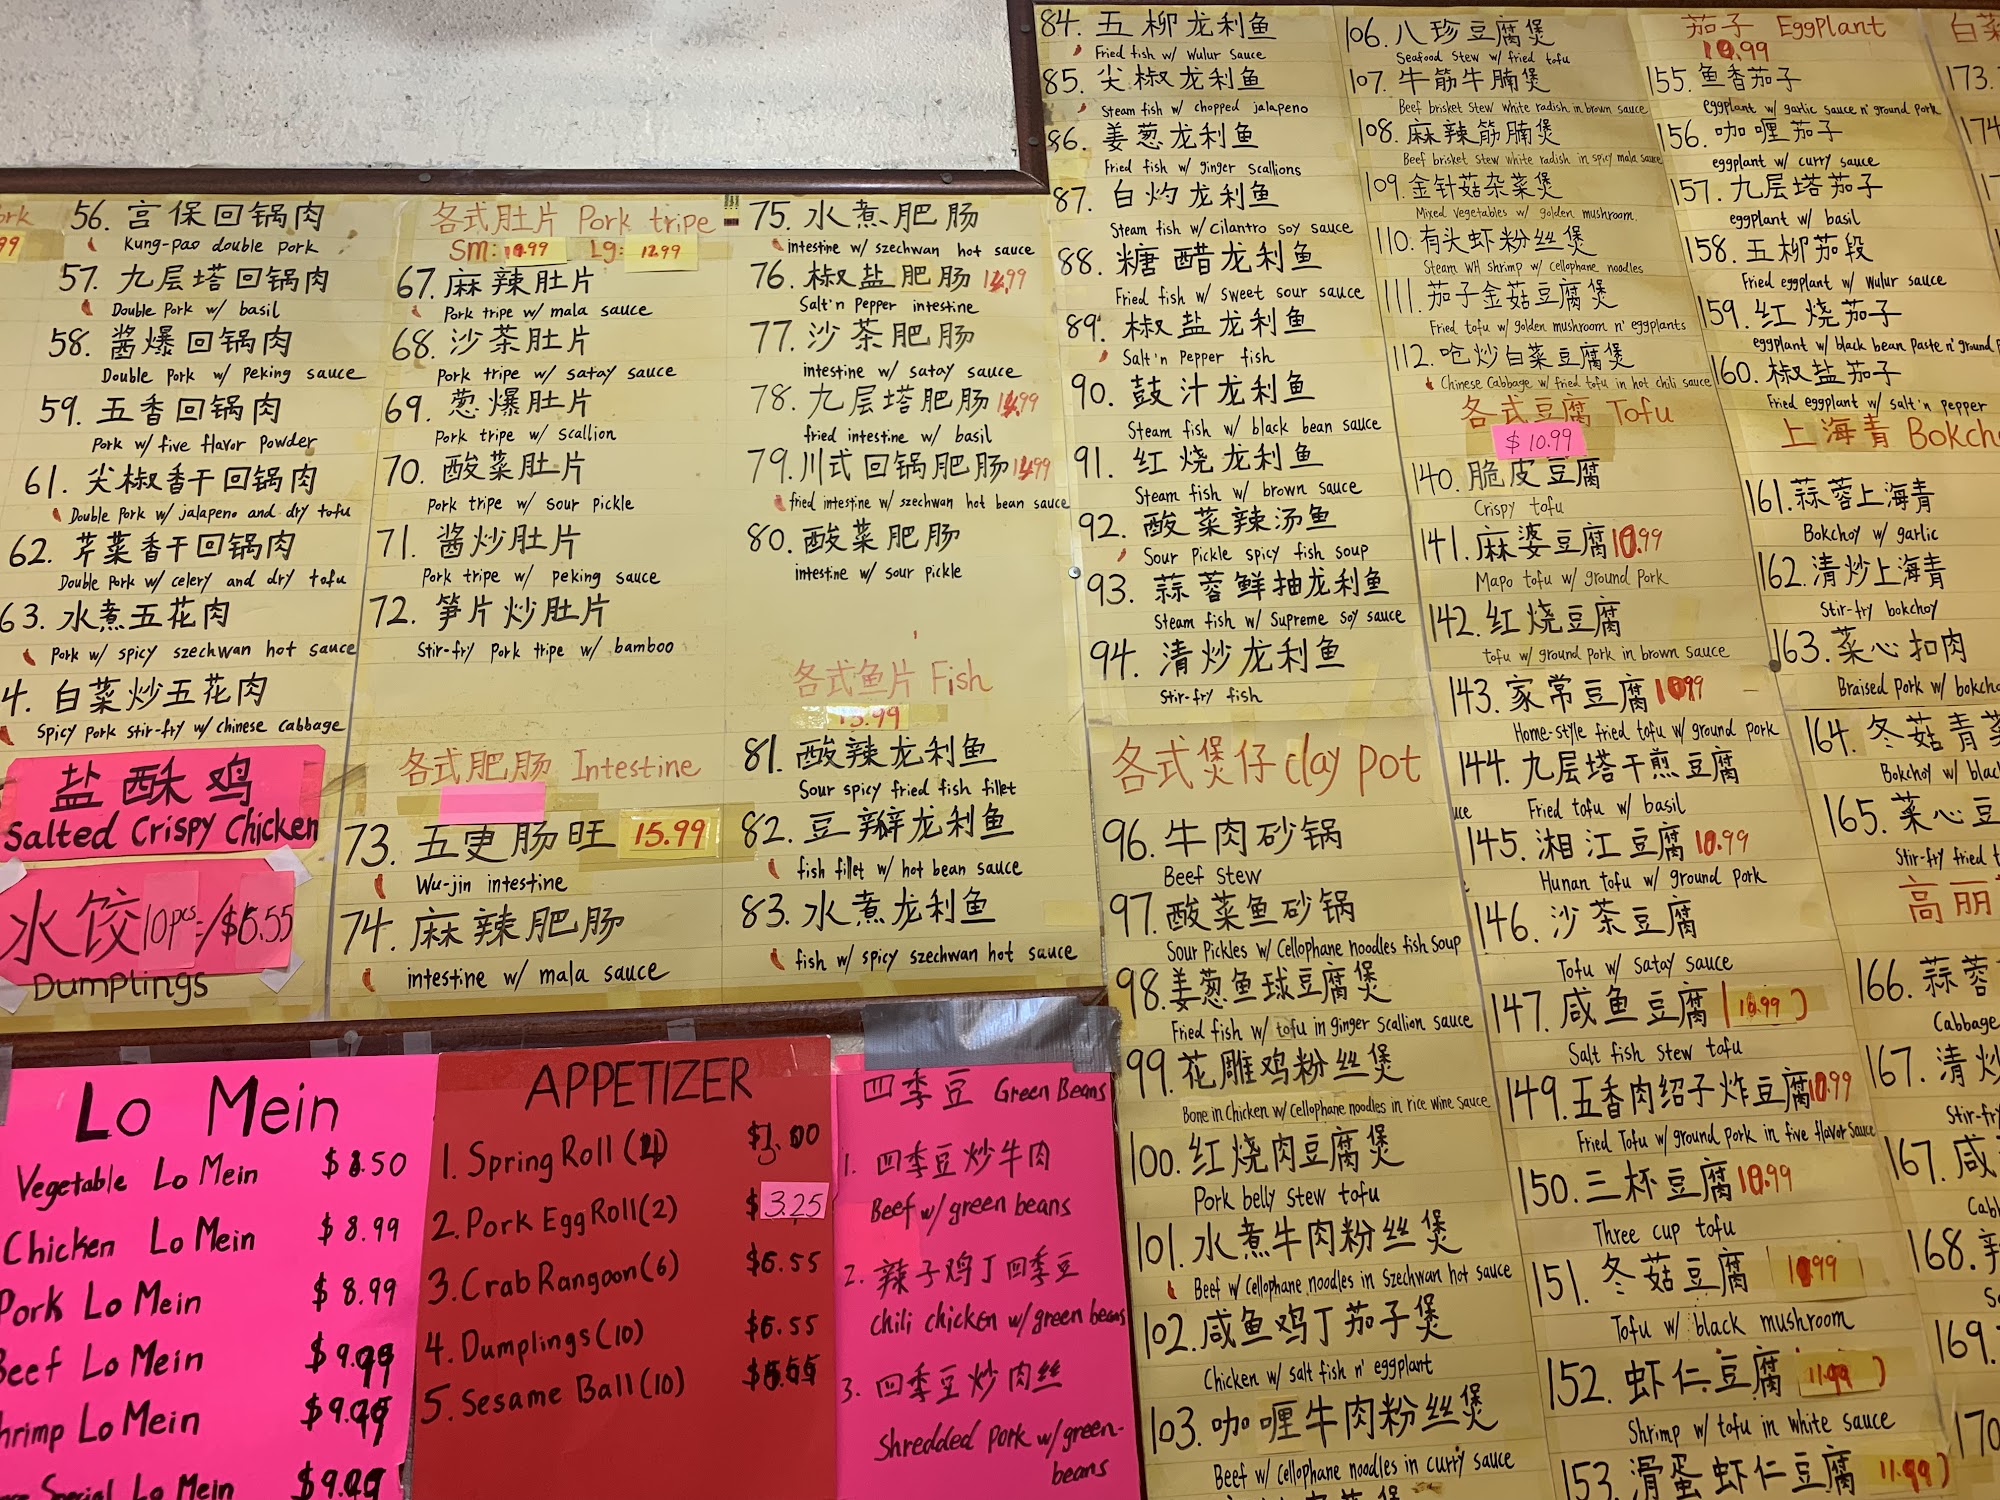 ork
99
56. 宫保回锅肉
Kung-pao double pork
57. 九层塔回锅肉
Double Pork w/ basil
58. 酱爆回锅肉
Double Pork w/ Peking sauce
59. 五香回锅肉
Pork w/ five flavor Powder
61. 尖椒香干回锅肉
Double Pork w/ jalapeno and dry tofu
62. 芹菜香干回锅肉
Double Pork w/ celery and dry tofu
63. 水煮五花肉
Pork w/ spicy szechwan hot sauce
4. 白菜炒五花肉
Spicy Pork stir-fry w/ chinese cabbage
盐酥鸡
Salted Crispy Chicken
水饺10pcs=/$6.55
Dumplings
各式肚片 Pork tripe
Sm: 10.99 Lg: 12.99
67. 麻辣肚片
Pork tripe w/ mala sauce
68. 沙茶肚片
Pork tripe w/ satay sauce
69. 葱爆肚片
Pork tripe w/ scallion
70. 酸菜肚片
Pork tripe w/ sour pickle
71. 酱炒肚片
Pork tripe w/ peking sauce
72. 笋片炒肚片
Stir-fry Pork tripe w/ bamboo
各式肥肠 Intestine
73. 五更肠旺 15.99
Wu-jin intestine
74. 麻辣肥肠
intestine w/ mala sauce
75. 水煮肥肠
intestine w/ szechwan hot sauce
76. 椒盐肥肠 14.99
Salt'n Pepper intestine
77. 沙茶肥肠
intestine w/ satay sauce
78. 九层塔肥肠 14.99
fried intestine w/ basil
79. 川式回锅肥肠 14.99
fried intestine w/ szechwan hot bean sauce
80. 酸菜肥肠
intestine w/ sour pickle
各式鱼片 Fish
13.99
81. 酸辣龙利鱼
Sour spicy fried fish fillet
82. 豆瓣龙利鱼
fish fillet w/ hot bean sauce
83. 水煮龙利鱼
fish w/ spicy szechwan hot sauce
84. 五柳龙利鱼
Fried fish w/ Wulur Sauce
85. 尖椒龙利鱼
Steam fish w/ chopped jalapeno
86. 姜葱龙利鱼
Fried fish w/ ginger scallions
87. 白灼龙利鱼
Steam fish w/ Cilantro soy sauce
88. 糖醋龙利鱼
Fried fish w/ sweet sour sauce
89. 椒盐龙利鱼
Salt'n Pepper fish
90. 鼓汁龙利鱼
Steam fish w/ black bean sauce
91. 红烧龙利鱼
Steam fish w/ brown sauce
92. 酸菜辣汤鱼
Sour Pickle spicy fish soup
93. 蒜蓉鲜抽龙利鱼
Steam fish w/ Supreme soy sauce
94. 清炒龙利鱼
Stir-fry fish
各式煲仔 clay pot
96. 牛肉砂锅
Beef stew
97. 酸菜鱼砂锅
Sour Pickles w/ Cellophane noodles fish Soup
98. 姜葱鱼球豆腐煲
Fried fish w/ tofu in ginger scallion sauce
99. 花雕鸡粉丝煲
Bone in Chicken w/ cellophane noodles in rice wine sauce
100. 红烧肉豆腐煲
Pork belly stew tofu
101. 水煮牛肉粉丝煲
Beef w/ cellophane noodles in Szechwan hot sauce
102. 咸鱼鸡丁茄子煲
Chicken w/ salt fish n' eggplant
103. 咖喱牛肉粉丝煲
Beef w/ Cellophane noodles in curry sauce
106. 八珍豆腐煲
Seafood stew w/ fried tofu
107. 牛筋牛腩煲
Beef brisket stew white radish in brown sauce
108. 麻辣筋腩煲
Beef brisket stew white radish in spicy mala sauce
109. 金针菇杂菜煲
Mixed vegetables w/ golden mushroom.
110. 有头虾粉丝煲
Steam WH shrimp w/ cellophane noodles
111. 茄子金菇豆腐煲
Fried tofu w/ golden mushroom n' eggplants
112. 呛炒白菜豆腐煲
Chinese Cabbage w/ fried tofu in hot chili sauce
各式豆腐 Tofu
$10.99
140. 脆皮豆腐
Crispy tofu
141. 麻婆豆腐 10.99
Mapo tofu w/ ground pork
142. 红烧豆腐
tofu w/ ground pork in brown sauce
143. 家常豆腐 10.99
Home-style fried tofu w/ ground pork
144. 九层塔干煎豆腐
Fried tofu w/ basil
uce
145. 湘江豆腐 10.99
Hunan tofu w/ ground pork
146. 沙茶豆腐
Tofu w/ satay sauce
147. 咸鱼豆腐 (10.99)
Salt fish stew tofu
149. 五香肉绍子炸豆腐 10.99
Fried Tofu w/ ground pork in five flavor sauce
150. 三杯豆腐 10.99
Three cup tofu
151. 冬菇豆腐 10.99
Tofu w/ black mushroom
152. 虾仁豆腐 11.99)
Shrimp w/ tofu in white sauce
153. 滑蛋虾仁豆腐 11.99)
茄子 Eggplant
10.99
155. 鱼香茄子
eggplant w/ garlic sauce n' ground pork
156. 咖喱茄子
eggplant w/ curry sauce
157. 九层塔茄子
eggplant w/ basil
158. 五柳茄段
Fried eggplant w/ wulur sauce
159. 红烧茄子
eggplant w/ black bean paste n' ground
160. 椒盐茄子
Fried eggplant w/ salt'n pepper
上海青 Bokch
161. 蒜蓉上海青
Bokchoy w/ garlic
162. 清炒上海青
Stir-fry bokchoy
163. 菜心扣肉
Braised pork w/ bokcho
164. 冬菇青菜
Bokchoy w/ blac
165. 菜心豆
Stir-fry fried t
高丽
166. 蒜蓉
Cabbage
167. 清炒
Stir-fr
167. 咸
Cabb
168.
169.
170
白菜
173.
174
Lo Mein
Vegetable Lo Mein $8.50
Chicken Lo Mein $8.99
Pork Lo Mein $8.99
Beef Lo Mein $9.99
hrimp Lo Mein $9.99
Special Lo Mein $9.99
APPETIZER
1. Spring Roll $3.00
2. Pork Egg Roll (2) $3.25
3. Crab Rangoon (6) $6.55
4. Dumplings (10) $6.55
5. Sesame Ball (10)
四季豆 Green Beans
1. 四季豆炒牛肉
Beef w/ green beans
2. 辣子鸡丁四季豆
chili chicken w/ green beans
3. 四季豆炒肉丝
Shredded pork w/ green-
beans